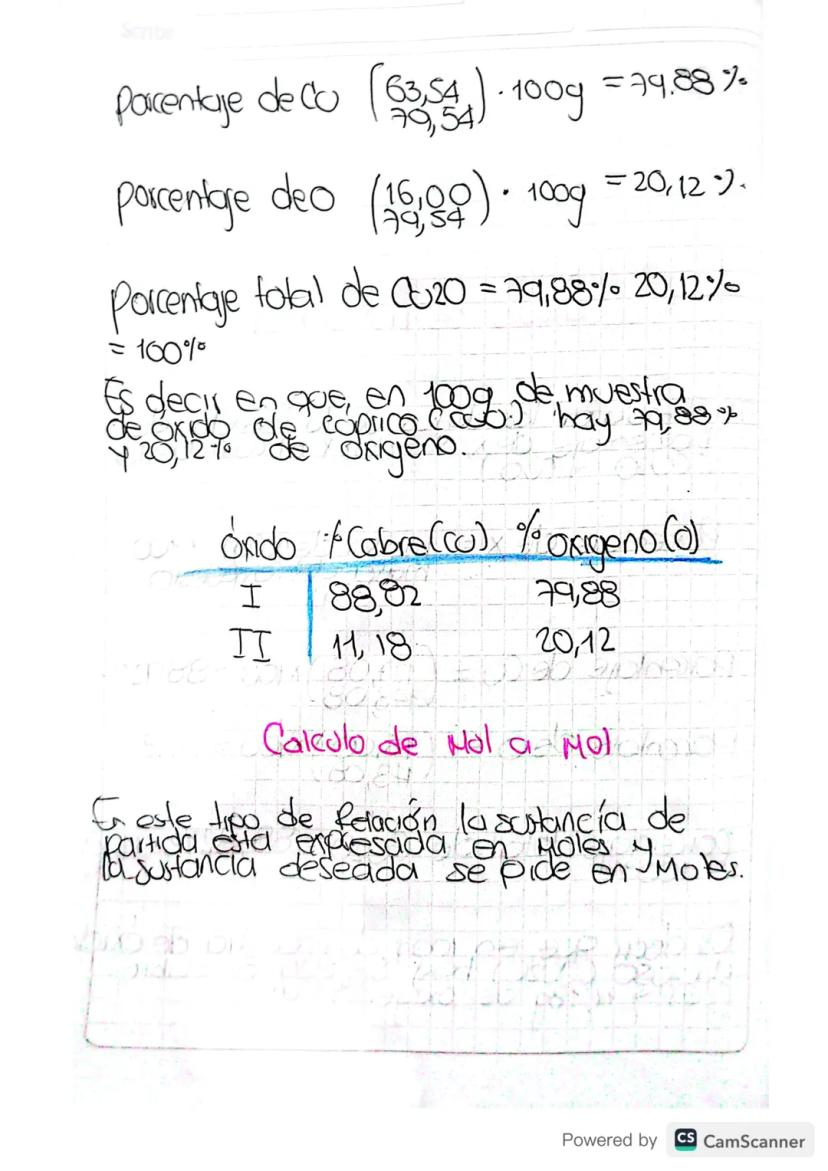 Scribe
porcentaje de Cu (63,54 79,54) · 100g = 79.88 %
porcentaje de O (16,00 79,54) · 100g = 20,12 %.
Porcentaje total de Cu2O = 79,88% 20,12%
= 100%
Es decir en que, en 100g de muestra
de óxido de cúprico (CuO) hay 79,88%
y 20,12% de oxígeno.
Óxido % Cobre (Cu) % oxigeno (O)
I 88,82 79,88
II 11,18 20,12
Calculo de Mol a Mol
En este tipo de Relación la sustancía de
partida está expresada en Moles y
la sustancia deseada se pide en Moles.
Powered by CS CamScanner